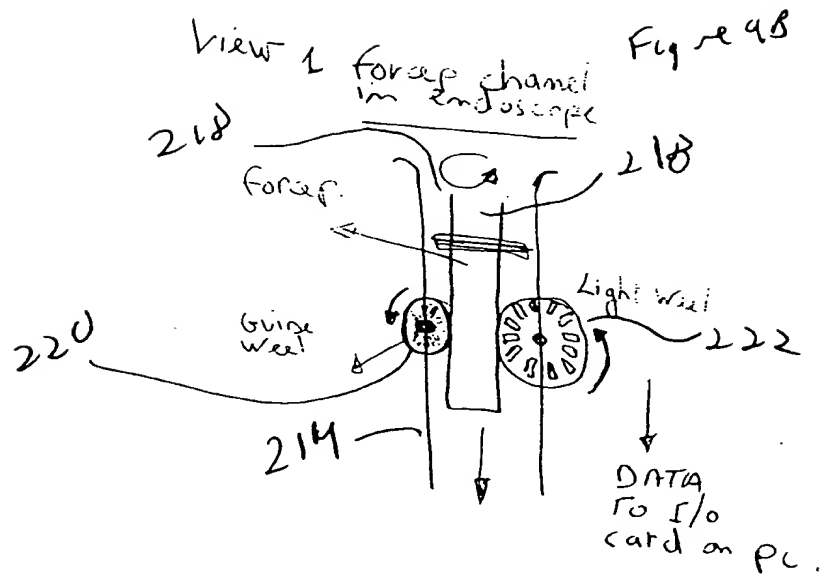 View 1
Figure 9B
forcep chanel
in endoscope
218
218
forcep.
Light weel
Guide
weel
220
222
214
DATA
TO I/O
card on PC.